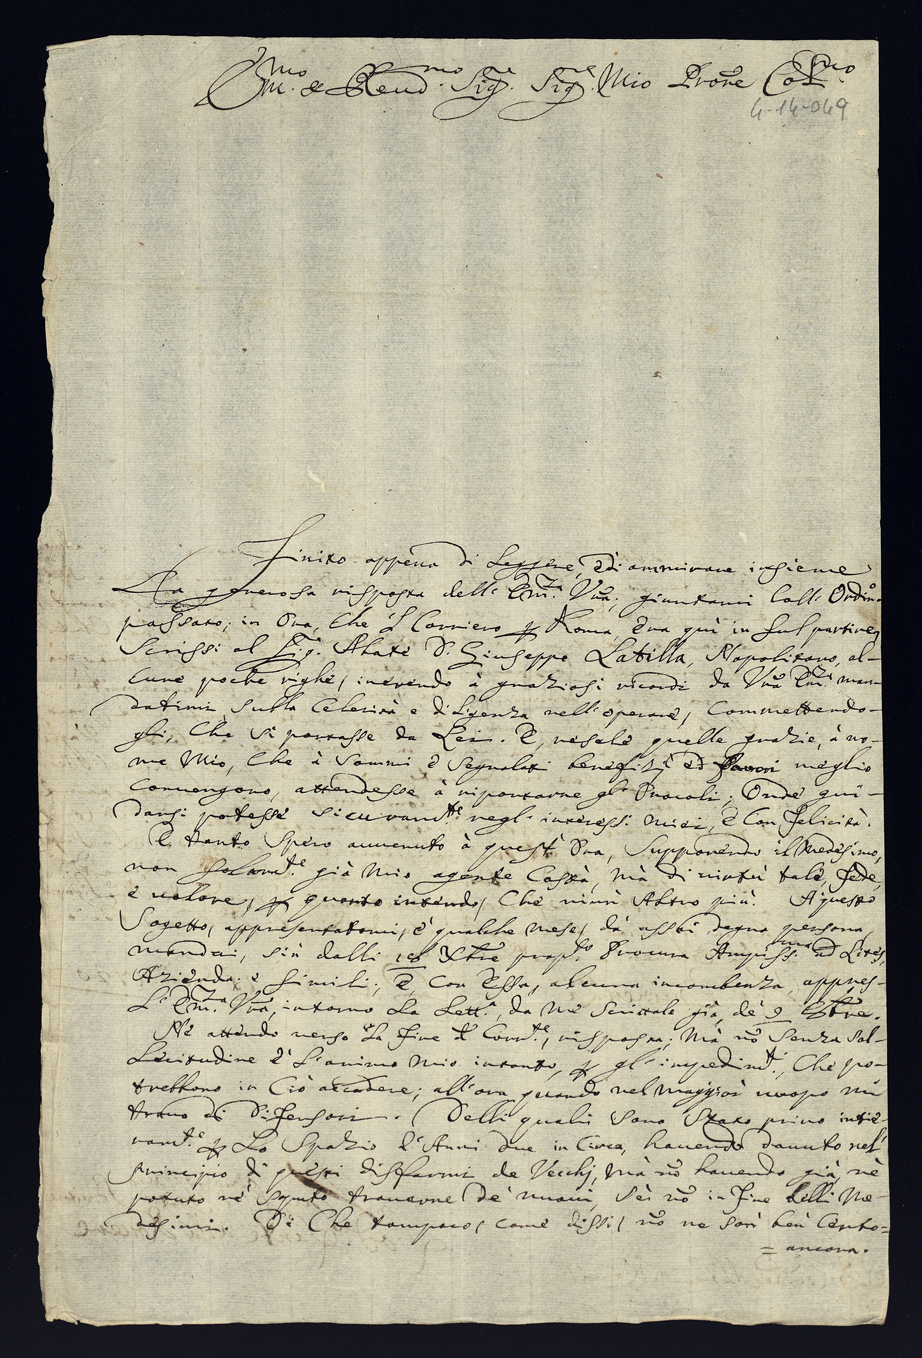 Em.mo & Reud.mo Sig.r Sig.r Mio Prone Col.mo
4-14-049
Finito appena di Leggere, èdi ammirare insieme
La generosa risposta dell' Em.za Vra; giuntami Coll' Ordin.o
passato; in Ora, Che 'l Corriero p Roma, Era quì in sul partire,
Scrissi al Sig.r Abate D. Giuseppe Latilla, Napolitano, al-
cune poche righe, inerendo à graziosi ricordi da Vra Em.za man-
datimi sulla Celerità e diligenza nell' operare, Commettendo-
gli, Che si portasse da Lei. E, resele quelle grazie, à no-
me Mio, Che à Sommi è Segnalati benefizi èd favori meglio
Conuengono, attendesse à riportarne gl' Oracoli; Onde gui-
darsi potesse sicuram.te negl' interessi miei, è Con felicità.
E tanto Spero auuenuto à quest' Ora, Supponendo il Medesimo,
non solam.te già Mio agente Costà, mà di uirtù tale, fede,
è ualore, p quanto intendo, Che niun Altro più. A questo
Sogetto, appresentatomi, è qualche mese, da assai degna persona,
mandai, sin dalli 18 Xbre prop.o Procura Ampiss.ma ad Lites,
Azienda, è simili; E, Con Essa, alcuna incombenza, appres-
L' Em.za Vra, intorno La Lett.a, da Me Scrittale già, de 9 Xbre.
Nè attendo uerso La fine d Corr.te, risposta; Mà nõ Senza Sol-
Lecitudine è L'animo Mio intanto, p gl' impedim.ti, Che po-
trebbono in Ciò accadere; all'ora quando nel maggior uuopo mi
trouo di Difensori. Delli quali sono Stato priuo intie-
ram.te p Lo Spazio d' Anni due in Circa, hauendo douuto nel
Principio di questi disfarmi de Vecchj, mà nõ hauendo già, nè
potuto nè saputo trouarne de nuoui, sè nõ in fine delli Me-
desimi. Di Che tampoco, come dissi, nõ ne sarò ben Certo-
= ancora.